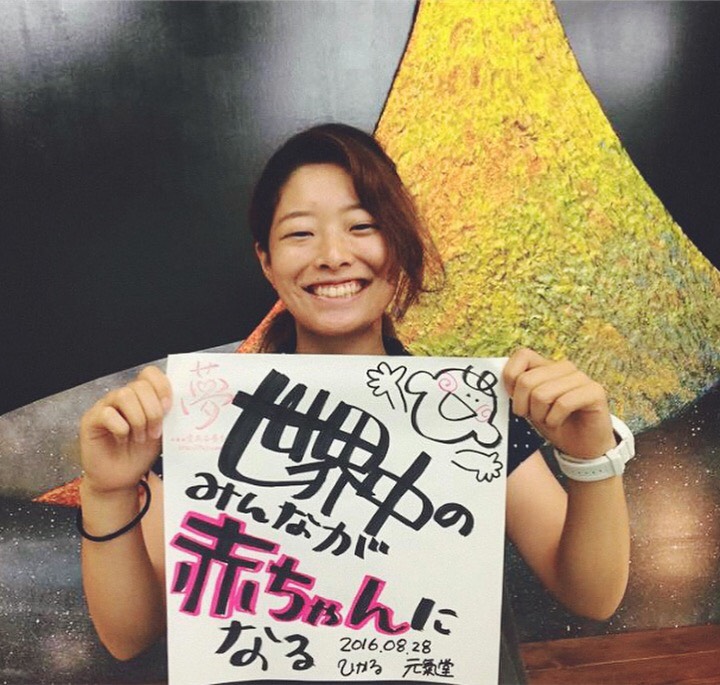 夢
世界中の
みんなが
赤ちゃんに
なる
2016.08.28
ひかる 元氣堂